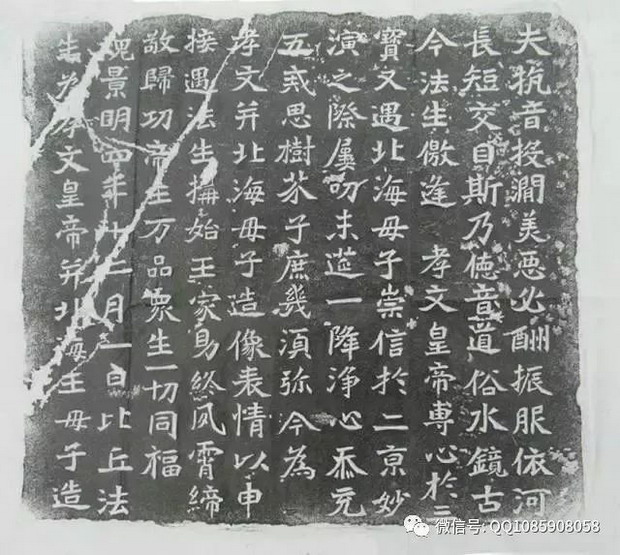 夫抗音投澗美惡必酬振服依河
長短交目斯乃德音道俗水鏡古
今法生儌逢 孝文皇帝專心於三
寶又遇北海母子崇信於二京妙
演之際屢叨末筵一降淨心忝充
五戒思樹芥子庶幾須彌今為
孝文并北海母子造像表情以申
接遇法生構始王家終夙霄締
敬歸功帝王万品眾生一切同福
魏景明四年十二月一日比丘法
生為孝文皇帝并北海王母子造
微信号: QQ1085908058